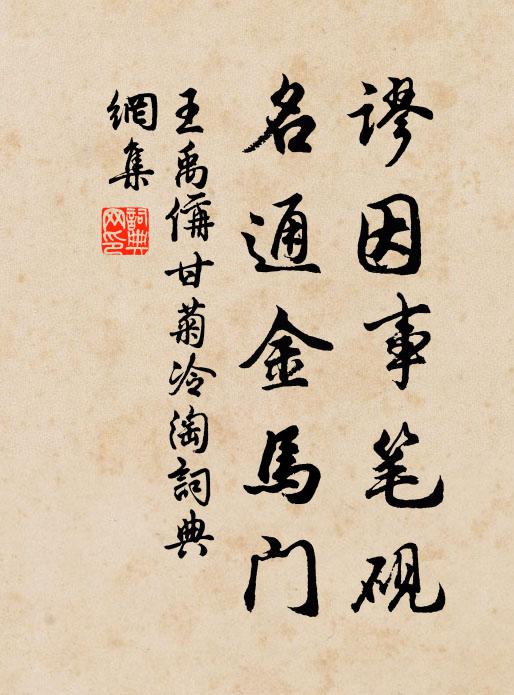 谬因事笔砚
名通金馬门
王禹偁甘菊冷淘詞典
網集
詞典網印